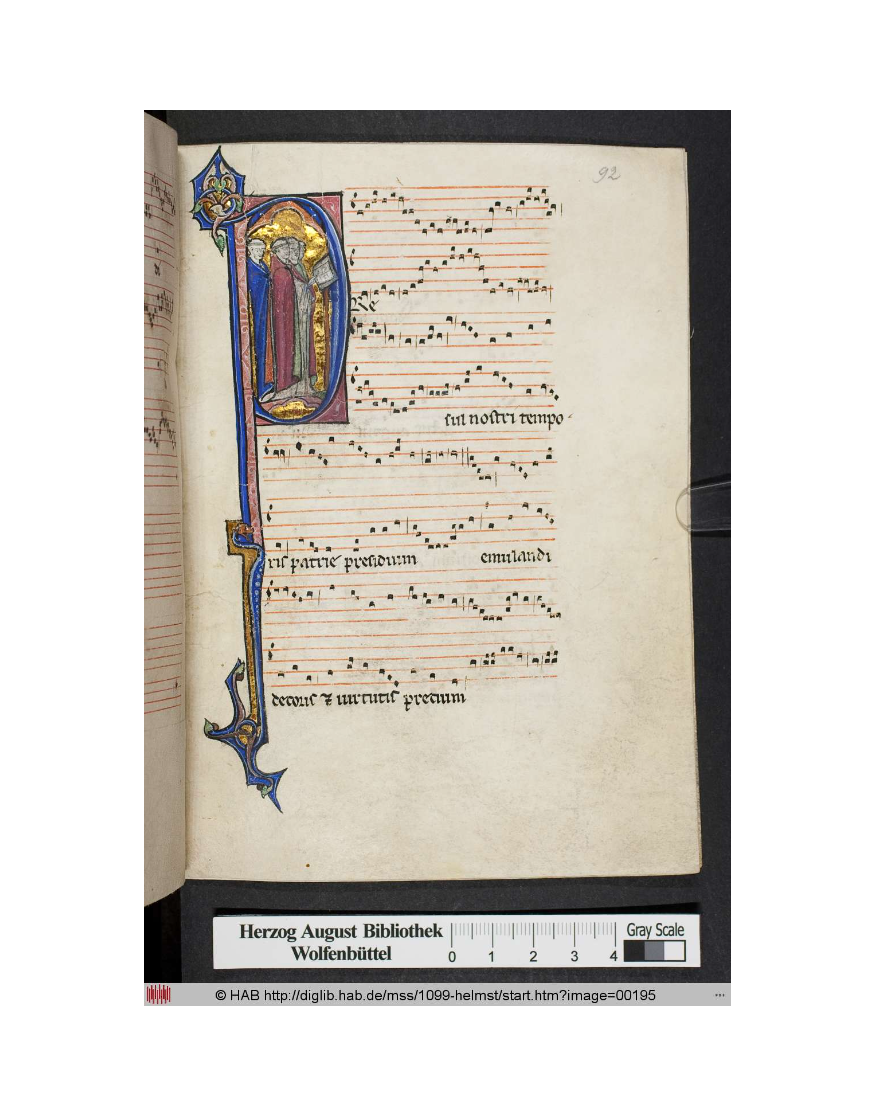 92
Re
sul nostri tempo-
ris patrie presidium emulandi
decoris ⁊ uirtutis precium
Herzog August Bibliothek
Wolfenbüttel
0 1 2 3 4
Gray Scale
© HAB http://diglib.hab.de/mss/1099-helmst/start.htm?image=00195